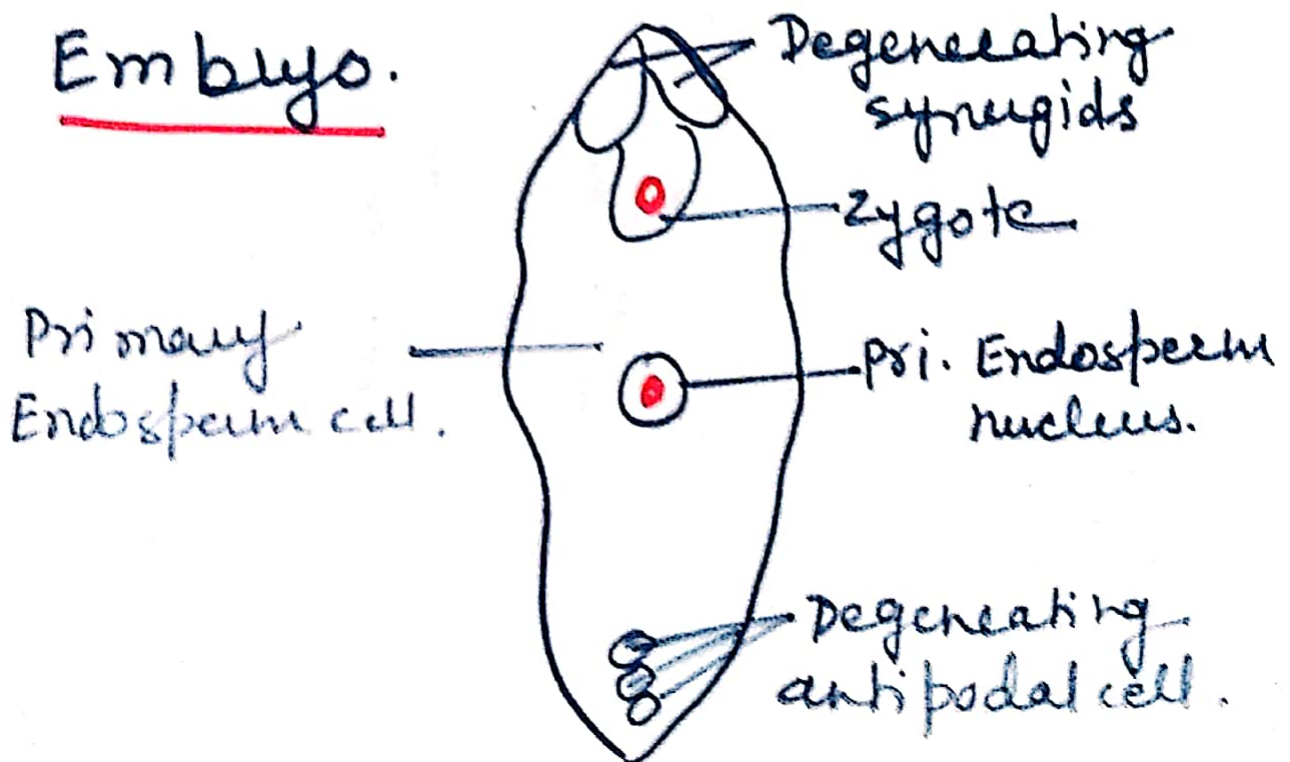 Embryo.
Degenerating
synergids
Zygote
Primary
Endosperm cell.
Pri. Endosperm
nucleus.
Degenerating
antipodal cell.